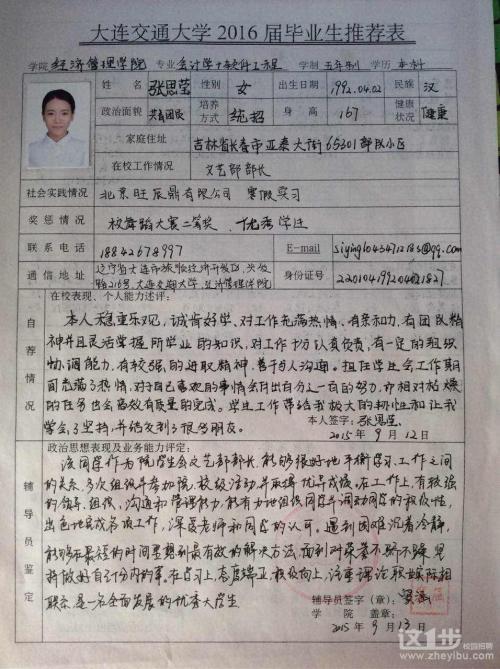 大连交通大学 2016 届毕业生推荐表
学院 经济管理学院 专业 会计学+软件工程 学制 五年制 学历 本科
姓名 张思莹 性别 女 出生日期 1992.04.02 民族 汉
政治面貌 共青团员 培养方式 统招 身高 167 健康状况 健康
家庭住址 吉林省长春市亚泰大街65301部队小区
在校工作情况 文艺部部长
社会实践情况 北京旺辰鼎有限公司 寒假实习
奖惩情况 校舞蹈大赛二等奖 优秀学生
联系电话 18842678997 E-mail
通信地址 辽宁省大连市旅顺经济开发区
路216号大连交通大学,经济管理学院 身份证号
自荐情况
在校表现、个人能力述评:
本人稳重乐观,诚肯好学、对工作充满热情、有亲和力、有团队精
神并且灵活掌握所学业的知识,对工作十分认真负责,有一定的组织
协调能力,有较强的进取精神,善于与人沟通。担任学生会工作期
间充满了热情,对于自己喜欢的事情会付出百分之一百的努力,亦相对枯燥
的任务也会高效有质量的完成。学生工作带给我极大的韧性和让我
学会了坚持,并结交到了很多朋友。
本人签字:张思莹
2015年9月12日
辅导员鉴定
政治思想表现及业务能力评定:
该同学作为院学生会文艺部部长,能够很好地平衡学习、工作之间
的关系,多次组织并参加校、级活动并取得优异成绩,在工作上,有较强
的领导、组织、沟通和管理能力,能有力地组织同学并调动同学的积极性,
出色地完成各项工作,深受老师和同学的认可。遇到困难沉着冷静,
能够用最短的时间想到最有效的解决方法,面对荣誉不骄不躁,坚
持做好自己分内的事。在学习上,态度端正,积极向上,该生理论联系实际相
联系是一名全面发展的优秀大学生
辅导员签字(章):
学院 盖章:
2015年9月13日
这1步 校园招聘
www.zheyibu.com